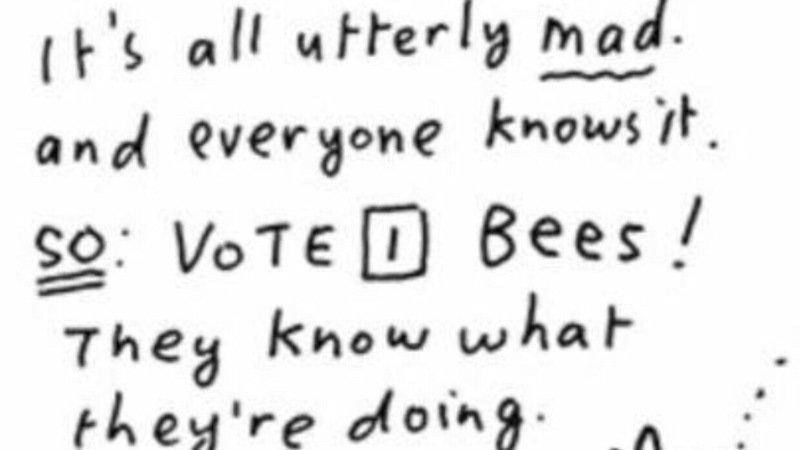 It's all utterly mad.
and everyone knows it.
SO: VOTE 1 Bees!
They know what
they're doing.